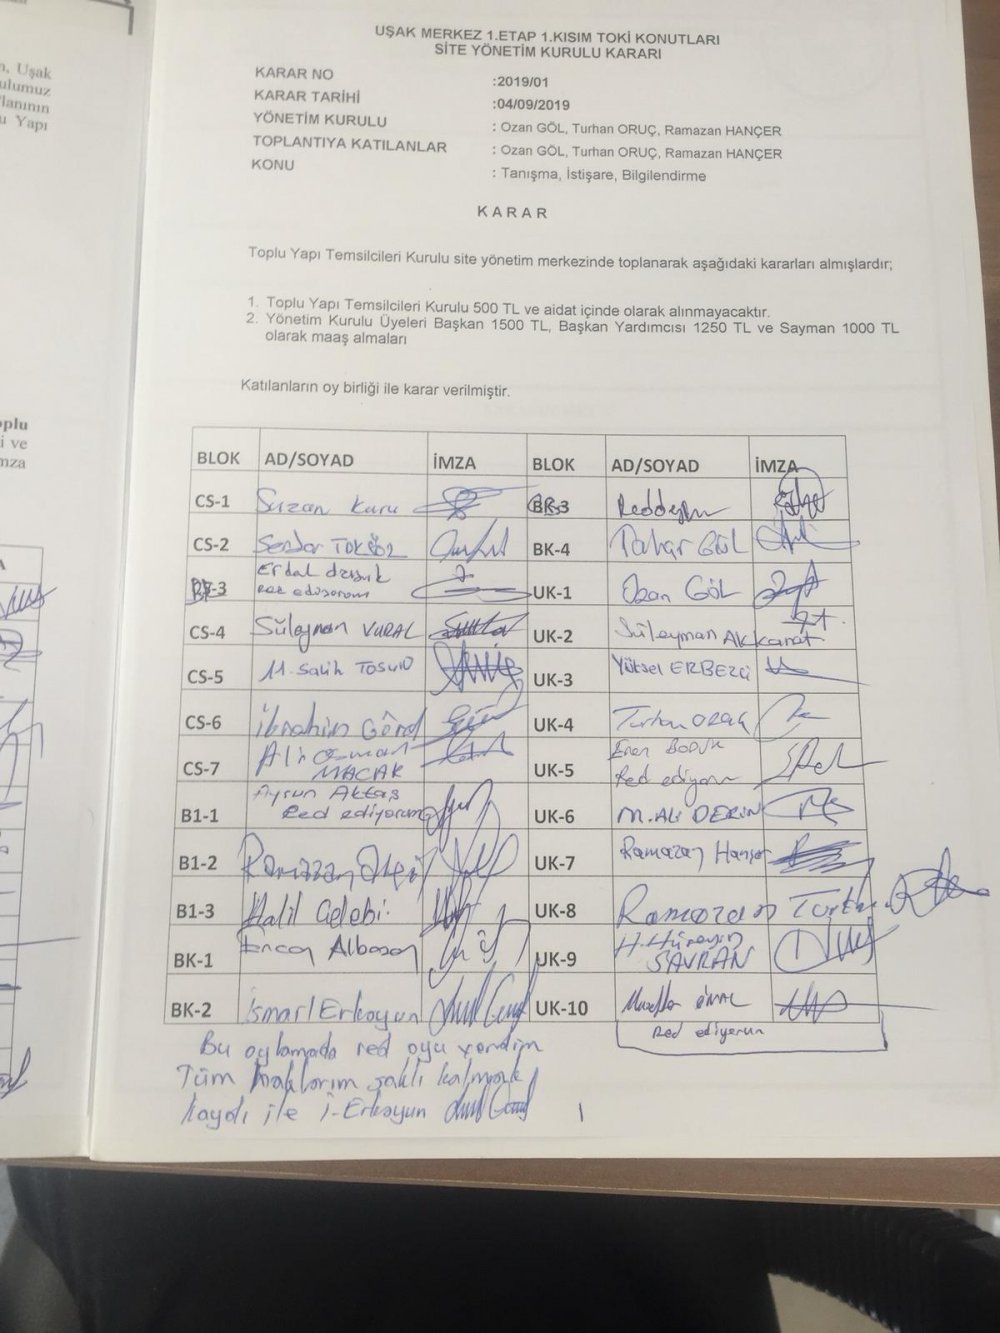 n, Uşak
ulumuz
lanının
u Yapı
oplu
i ve
mza
A
UŞAK MERKEZ 1.ETAP 1.KISIM TOKİ KONUTLARI
SİTE YÖNETİM KURULU KARARI
KARAR NO :2019/01
KARAR TARİHİ :04/09/2019
YÖNETİM KURULU : Ozan GÖL, Turhan ORUÇ, Ramazan HANÇER
TOPLANTIYA KATILANLAR : Ozan GÖL, Turhan ORUÇ, Ramazan HANÇER
KONU : Tanışma, İstişare, Bilgilendirme
K A R A R
Toplu Yapı Temsilcileri Kurulu site yönetim merkezinde toplanarak aşağıdaki kararları almışlardır;
1. Toplu Yapı Temsilcileri Kurulu 500 TL ve aidat içinde olarak alınmayacaktır.
2. Yönetim Kurulu Üyeleri Başkan 1500 TL, Başkan Yardımcısı 1250 TL ve Sayman 1000 TL
olarak maaş almaları
Katılanların oy birliği ile karar verilmiştir.
BLOK AD/SOYAD İMZA BLOK AD/SOYAD İMZA
CS-1 Suzan Kuru BK-3
CS-2 Serdar BK-4 Tahar GÖL
-3 Erdal UK-1 Ozan GÖL
red ediyorum
CS-4 Süleyman VURAL UK-2 Süleyman Akkanat
CS-5 M. Salih TOSUN UK-3 Yüksel ERBEZCİ
CS-6 İbrahim UK-4 Turhan
CS-7 Ali Osman UK-5 Eren
MACAR Red ediyorum
B1-1 Aysun Aktaş UK-6 M. Ali DERİN
Red ediyorum
B1-2 Ramazan UK-7 Ramazan Hançer
B1-3 Halil Çelebi UK-8 Ramazan
BK-1 Ercan UK-9 H. Hüseyin
SAVRAN
BK-2 İsmail Erkoyun UK-10 Muzaffer
Red ediyorum
Bu oylamada red oyu verdim
Tüm haklarım saklı kalmak
kaydı ile İ-Erkoyun
1